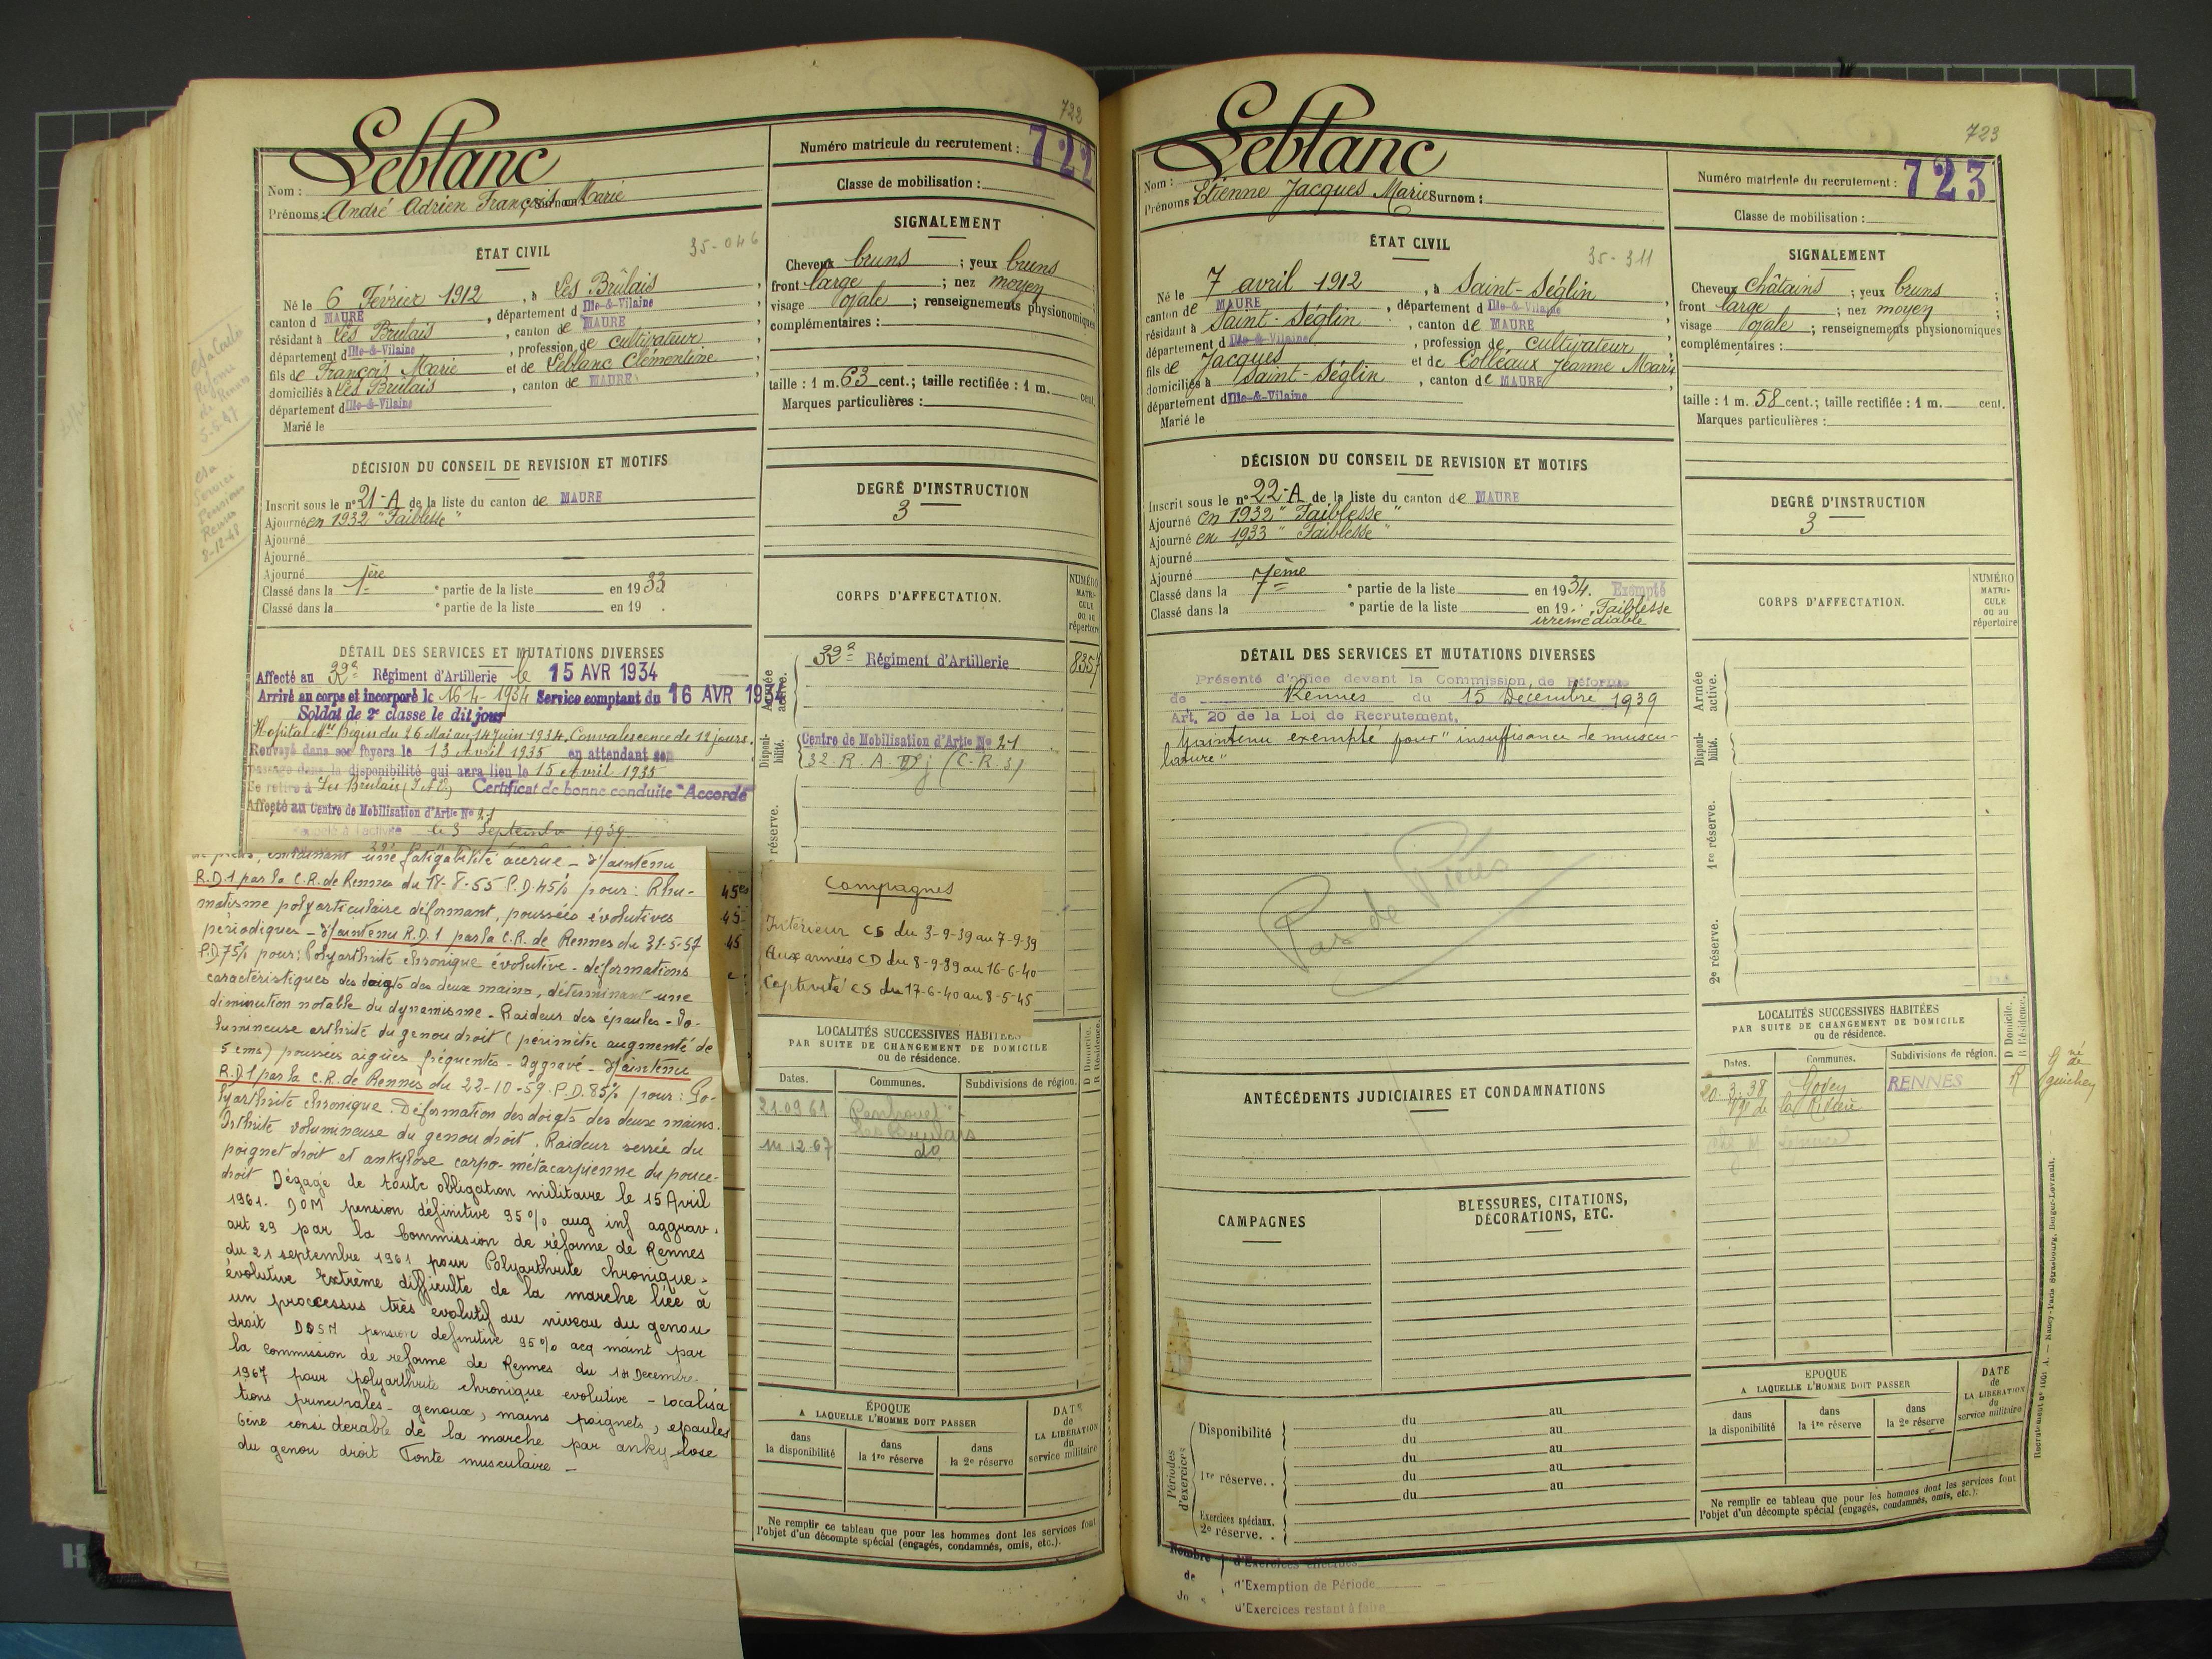 722
Leblanc
Nom :
Prénoms : André Adrien François Marie
Numéro matricule du recrutement : 722
Classe de mobilisation :
ÉTAT CIVIL
35-046
Né le 6 Février 1912, à Les Brûlais,
canton d MAURE, département d Ille-&-Vilaine
résidant à Les Brulais, canton de MAURE
département d Ille-&-Vilaine, profession de cultivateur
fils de François Marie et de Leblanc Clémentine
domiciliés à Les Brulais, canton de MAURE
département d Ille-&-Vilaine
Marié le
SIGNALEMENT
Cheveux bruns ; yeux bruns
front large ; nez moyen ;
visage ovale ; renseignements physionomiques
complémentaires :
taille : 1 m. 63 cent.; taille rectifiée : 1 m. cent.
Marques particulières :
DÉCISION DU CONSEIL DE REVISION ET MOTIFS
Inscrit sous le n° 21-A de la liste du canton de MAURE
Ajourné en 1932 "Faiblesse"
Ajourné
Ajourné
Ajourné
Classé dans la 1ère ° partie de la liste en 1933
Classé dans la ° partie de la liste en 19 .
DEGRÉ D'INSTRUCTION
3
CORPS D'AFFECTATION.
NUMÉRO
MATRI-
CULE
ou au
répertoire
DÉTAIL DES SERVICES ET MUTATIONS DIVERSES
Affecté au 32e Régiment d'Artillerie le 15 AVR 1934
Arrivé au corps et incorporé le 16-4-1934 Service comptant du 16 AVR 1934
Soldat de 2e classe le dit jour
Hopital Mre Bégin du 26 Mai au 14 Juin 1934. Convalescence de 12 jours.
Renvoyé dans ses foyers le 13 Avril 1935 en attendant son
passage dans la disponibilité qui aura lieu le 15 Avril 1935
Se retire à Les Brulais (I.&V.) Certificat de bonne conduite "Accordé"
Affecté au Centre de Mobilisation d'Artie No 21
Rappelé à l'activité le 3 Septembre 1939
Armée
active.
32e Régiment d'Artillerie 8357
Disponi-
bilité.
Centre de Mobilisation d'Artie No 21
32. R. A. (C.R.3)
réserve.
entrainant une fatigabilité accrue - Maintenu
R.D.1 par la C.R. de Rennes du 18-8-55 P.D. 45% pour : Rhu-
matisme polyarticulaire déformant, poussées évolutives
périodiques - Maintenu R.D.1 par la C.R. de Rennes du 31-5-57
P.D. 75% pour : Polyarthrite chronique évolutive - déformations
caractéristiques des doigts des deux mains, déterminant une
diminution notable du dynamisme - Raideur des épaules - Vo-
lumineuse arthrite du genou droit (périmètre augmenté de
5 cms) poussées aigües fréquentes - aggravé - Maintenu
R.D.1 par la C.R. de Rennes du 22-10-59. P.D. 85% pour : Po-
lyarthrite chronique. Déformation des doigts des deux mains.
Arthrite volumineuse du genou droit. Raideur serrée du
poignet droit et ankylose carpo-métacarpienne du pouce
droit Dégagé de toute obligation militaire le 15 Avril
1961. DOM pension définitive 95% aug inf aggrav.
art 29 par la Commission de réforme de Rennes
du 21 septembre 1961 pour Polyarthrite chronique
évolutive Extrème difficulté de la marche liée à
un processus très évolutif au niveau du genou
droit DOSM pension définitive 95% acq maint par
la commission de reforme de Rennes du 14 Decembre
1967 pour polyarthrite chronique evolutive - Localisa
tions principales - genoux, mains poignets, epaules
Gène considerable de la marche par ankylose
du genou droit Fonte musculaire -
Campagnes
Intérieur CS du 3-9-39 au 7-9-39
Aux armées CD du 8-9-39 au 16-6-40
Captivité CS du 17-6-40 au 8-5-45
LOCALITÉS SUCCESSIVES HABITÉES
PAR SUITE DE CHANGEMENT DE DOMICILE
ou de résidence.
D Domicile.
R Résidence.
Dates. Communes. Subdivisions de région.
21.09.61
Les Brulais
14 12-67 do
ÉPOQUE
A LAQUELLE L'HOMME DOIT PASSER
dans la disponibilité
dans la 1re réserve
dans la 2e réserve
DATE
de
LA LIBÉRATION
du
service militaire
Ne remplir ce tableau que pour les hommes dont les services font
l'objet d'un décompte spécial (engagés, condamnés, omis, etc.).
723
Leblanc
Nom :
Prénoms : Etienne Jacques Marie Surnom :
Numéro matricule du recrutement : 723
Classe de mobilisation :
ÉTAT CIVIL
35-311
Né le 7 avril 1912, à Saint-Séglin,
canton de MAURE, département d Ille-&-Vilaine
résidant à Saint-Séglin, canton de MAURE
département d Ille-&-Vilaine, profession de cultivateur
fils de Jacques et de Colléaux Jeanne Marie
domiciliés à Saint-Séglin, canton de MAURE
département d Ille-&-Vilaine
Marié le
SIGNALEMENT
Cheveux châtains ; yeux bruns ;
front large ; nez moyen ;
visage ovale ; renseignements physionomiques
complémentaires :
taille : 1 m. 58 cent.; taille rectifiée : 1 m. cent.
Marques particulières :
DÉCISION DU CONSEIL DE REVISION ET MOTIFS
Inscrit sous le n° 22-A de la liste du canton de MAURE
Ajourné en 1932 "Faiblesse"
Ajourné en 1933 "Faiblesse"
Ajourné
Ajourné
Classé dans la 7ème ° partie de la liste en 1934. Exempté
Classé dans la ° partie de la liste en 19 . Faiblesse
irrémédiable
DEGRÉ D'INSTRUCTION
3
CORPS D'AFFECTATION.
NUMÉRO
MATRI-
CULE
ou au
répertoire
DÉTAIL DES SERVICES ET MUTATIONS DIVERSES
Présenté d'office devant la Commission de Réforme
de Rennes du 15 Décembre 1939
Art. 20 de la Loi de Recrutement.
Maintenu exempté pour "insuffisance de muscu-
lature"
Pas de Pièces
Armée
active.
Disponi-
bilité.
1re réserve.
2e réserve.
ANTÉCÉDENTS JUDICIAIRES ET CONDAMNATIONS
LOCALITÉS SUCCESSIVES HABITÉES
PAR SUITE DE CHANGEMENT DE DOMICILE
ou de résidence.
D Domicile.
R Résidence.
Dates. Communes. Subdivisions de région.
20-3-38 Goven RENNES R
CAMPAGNES
BLESSURES, CITATIONS,
DÉCORATIONS, ETC.
Périodes
d'exercices
Disponibilité du au
du au
1re réserve.. du au
du au
du au
Exercices spéciaux.
2e réserve. .
ÉPOQUE
A LAQUELLE L'HOMME DOIT PASSER
dans la disponibilité
dans la 1re réserve
dans la 2e réserve
DATE
de
LA LIBÉRATION
du
service militaire
Ne remplir ce tableau que pour les hommes dont les services font
l'objet d'un décompte spécial (engagés, condamnés, omis, etc.).
Nombre
de
d'Exercices effectués
d'Exemption de Période
d'Exercices restant à faire